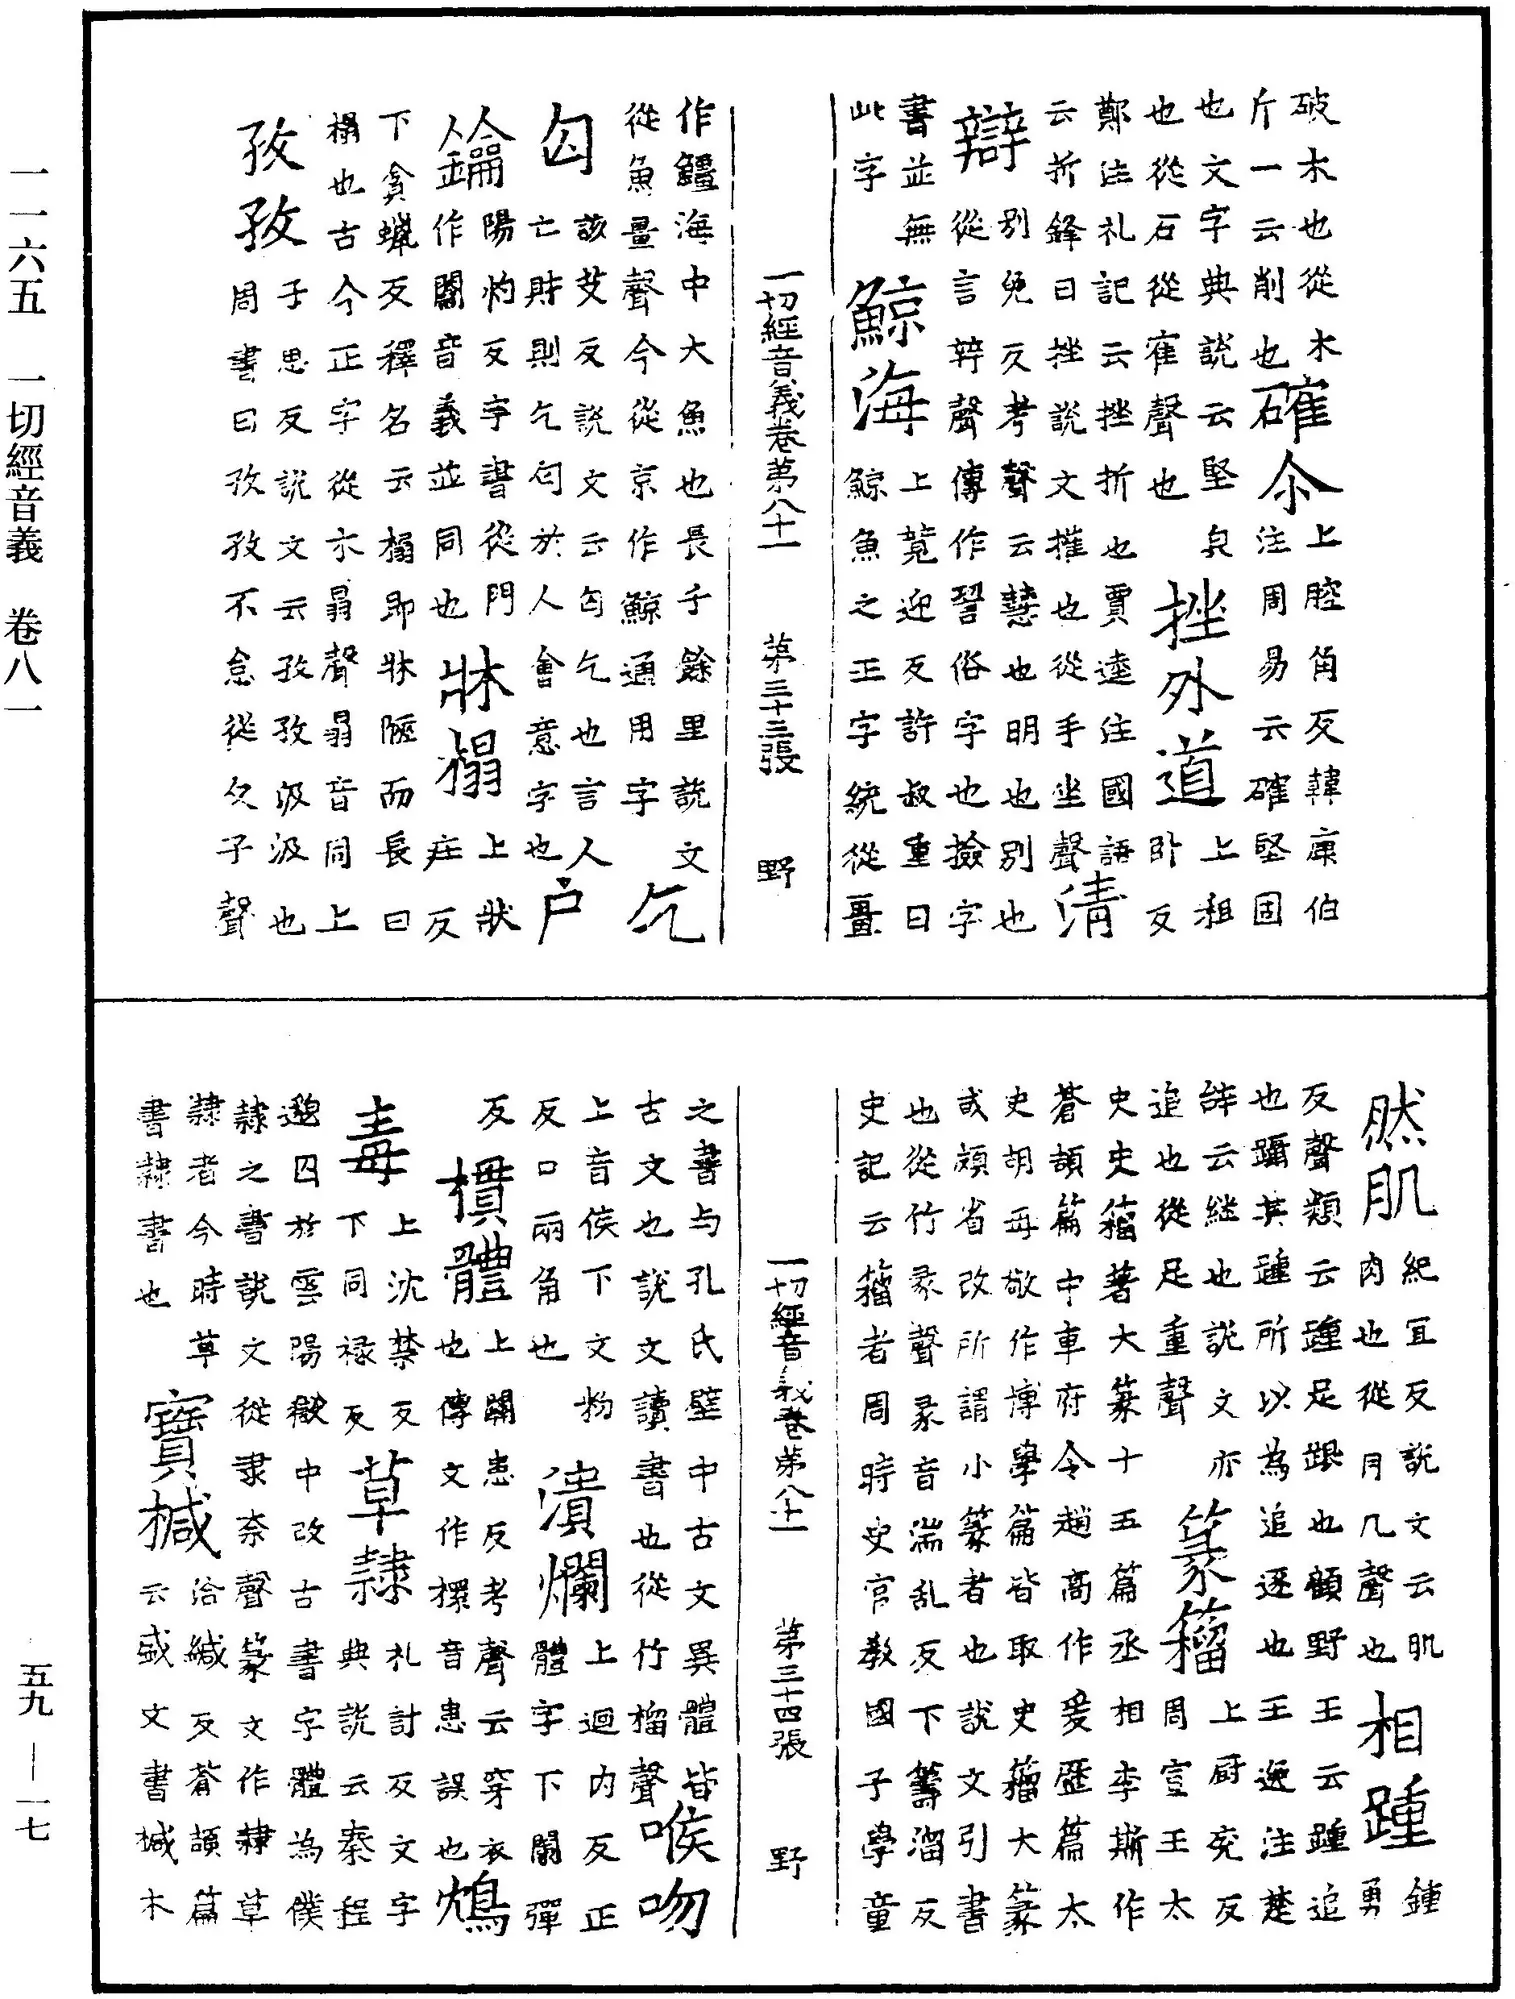 破木也從木
斤一云削也確尒上腔角反韓康伯
注周易云確堅固
也文字典說云堅皃
也從石從隺聲也挫外道上租
卧反
鄭注礼記云挫折也賈逵注國語
云折鋒曰挫說文摧也從手坐聲清
辯別免反考聲云慧也明也別也
從言辡聲傳作䛒俗字也撿字
書並無
此字鯨海上競迎反許叔重曰
鯨魚之正字統從畺
一切經音義卷第八十一 第三十三張 野
作䲔海中大魚也長千餘里說文
從魚畺聲今從京作鯨通用字乞
匃該艾反說文云匃乞也言人
亡財則乞匃於人會意字也户
鑰陽灼反字書從門
作闔音義並同也牀榻上狀
疰反
下貪蠟反釋名云榻即牀陿而長曰
榻也古今正字從木𦐇聲𦐇音同上
孜孜子思反說文云孜孜汲汲也
周書曰孜孜不怠從攵子聲
然肌紀冝反說文云肌
肉也從月几聲也相踵鍾
勇
反聲類云踵足跟也顧野王云踵追
也躡其踵所以為追逐也王逸注楚
辝云継也說文亦
追也從足重聲篆籀上厨兖反
周宣王太
史史籀著大篆十五篇丞相李斯作
蒼頡篇中車府令趙高作爰歷篇太
史胡毋敬作博學篇皆取史籀大篆
或頗省改所謂小篆者也說文引書
也從竹彖聲彖音湍乱反下籌溜反
史記云籀者周時史官教國子學童
一切經音義卷第八十一 第三十四張 野
之書与孔氏壁中古文異體皆
古文也說文讀書也從竹榴聲喉吻
上音侯下文粉
反口兩角也潰爛上迴内反正
體字下闌彈
反
樌體上關患反考聲云穿衣
也傳文作摜音患誤也鴆
毒上沈禁反
下同禄反草隷札討反文字
典說云秦程
邈囚於雲陽獄中改古書字體為僕
隷之書說文從隶柰聲篆文作隷草
隷者今時草
書隷書也寶椷洽緘反蒼頡篇
云盛文書椷木
一一六五 一切經音義 卷八一
五九 — 一七